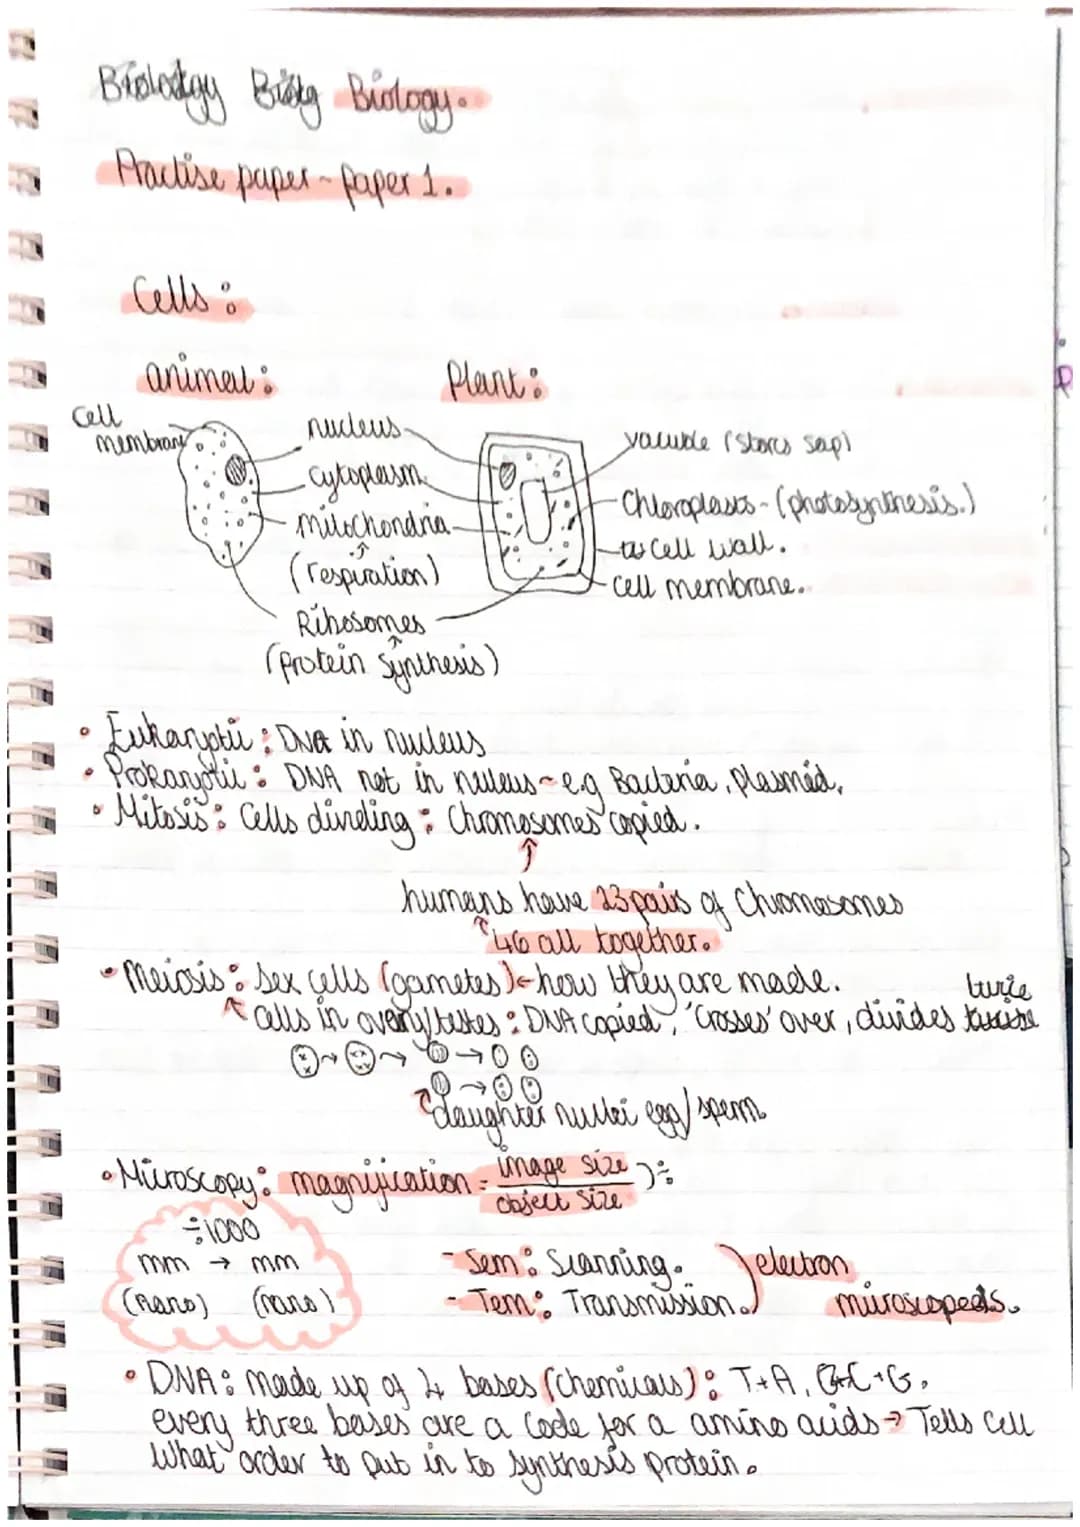 Biology Biolg Biology.
Practise paper - paper 1.
Cells:
animal:
Plant:
Cell
membrane
nucleus
cytoplasm
mitochondria
(respiration)
Ribosomes
(protein synthesis)
vacuole (stores sap)
Chloroplasts - (photosynthesis.)
cell wall.
cell membrane.
• Eukaryotic: DNA in nucleus
• Prokaryotic: DNA not in nucleus - e.g Bacteria, plasmid.
• Mitosis: Cells dividing: Chromosomes copied.
↑
humans have 23 pairs of Chromosomes
46 all together.
• Meiosis: Sex cells (gametes) ← how they are made.
cells in ovary/testes: DNA copied, 'Crosses' over, divides twice
daughter nuclei egg/sperm
• Microscopy: magnification = image size ) ÷
object size
÷1000
mm → mm
(nano) (nano)
- Sem: Scanning.
- Tem: Transmission.
electron
microscopes.
• DNA: made up of 4 bases (chemicals): T+A, C+G.
every three bases are a code for a amino acids → Tells cell
What order to put in to synthesis protein.